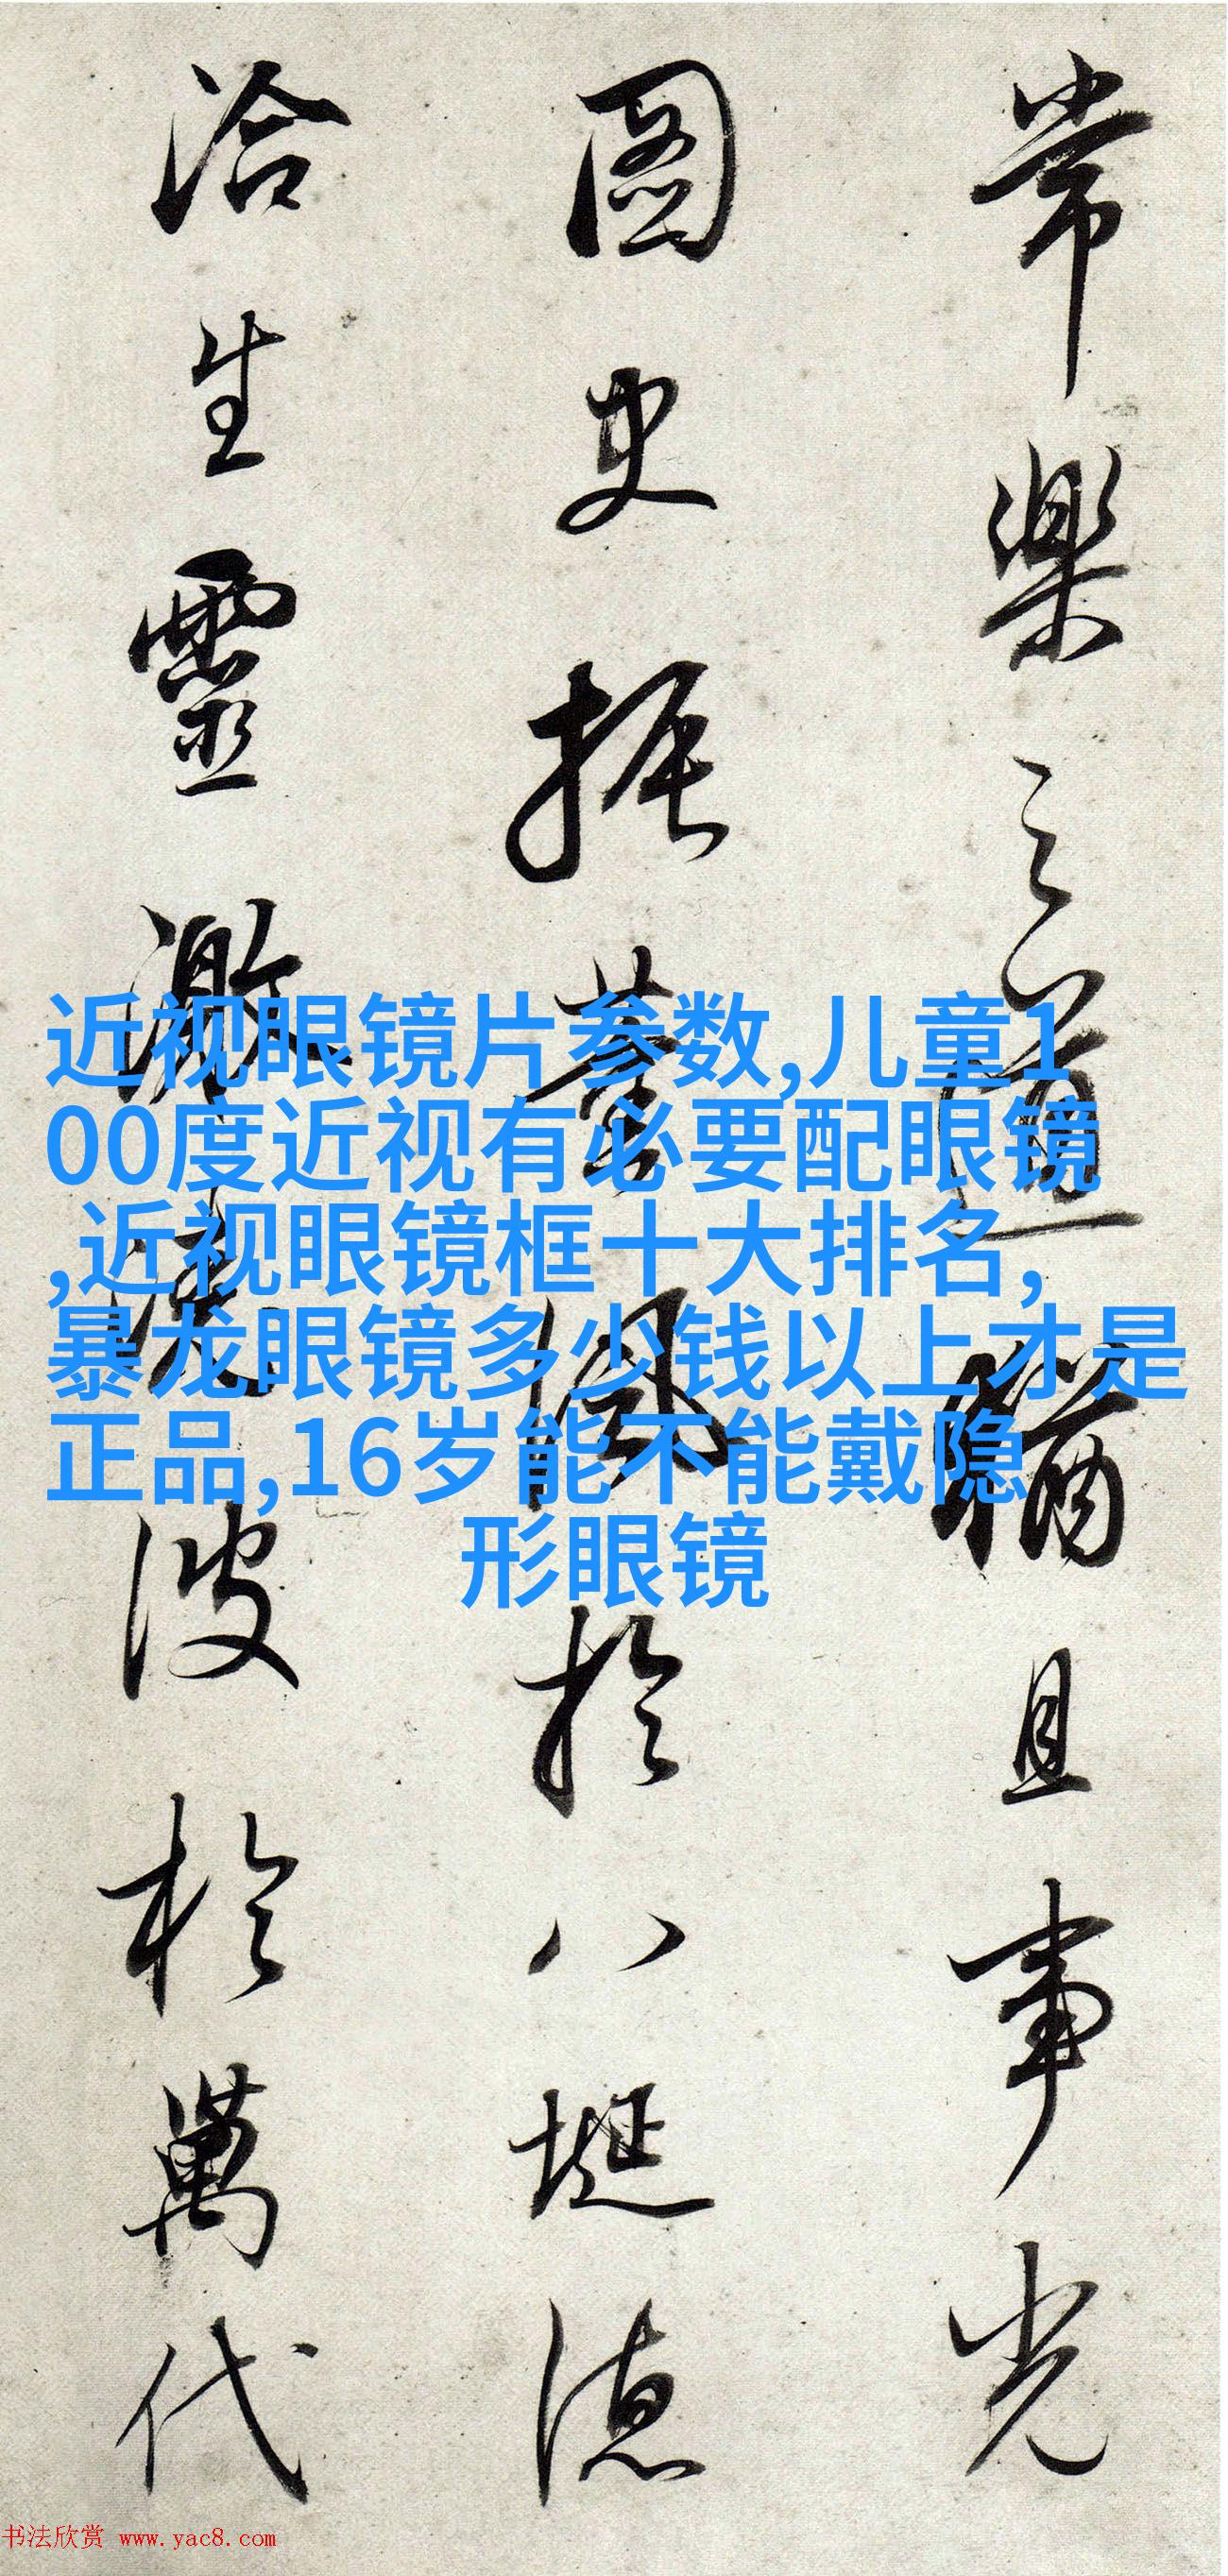 常樂之道猶且事光
圖史振薰風於八埏德
洽生靈激清波於萬代
近视眼镜片参数,儿童1
00度近视有必要配眼镜
,近视眼镜框十大排名,
暴龙眼镜多少钱以上才是
正品,16岁能不能戴隐
形眼镜
书法欣赏 www.yac8.com